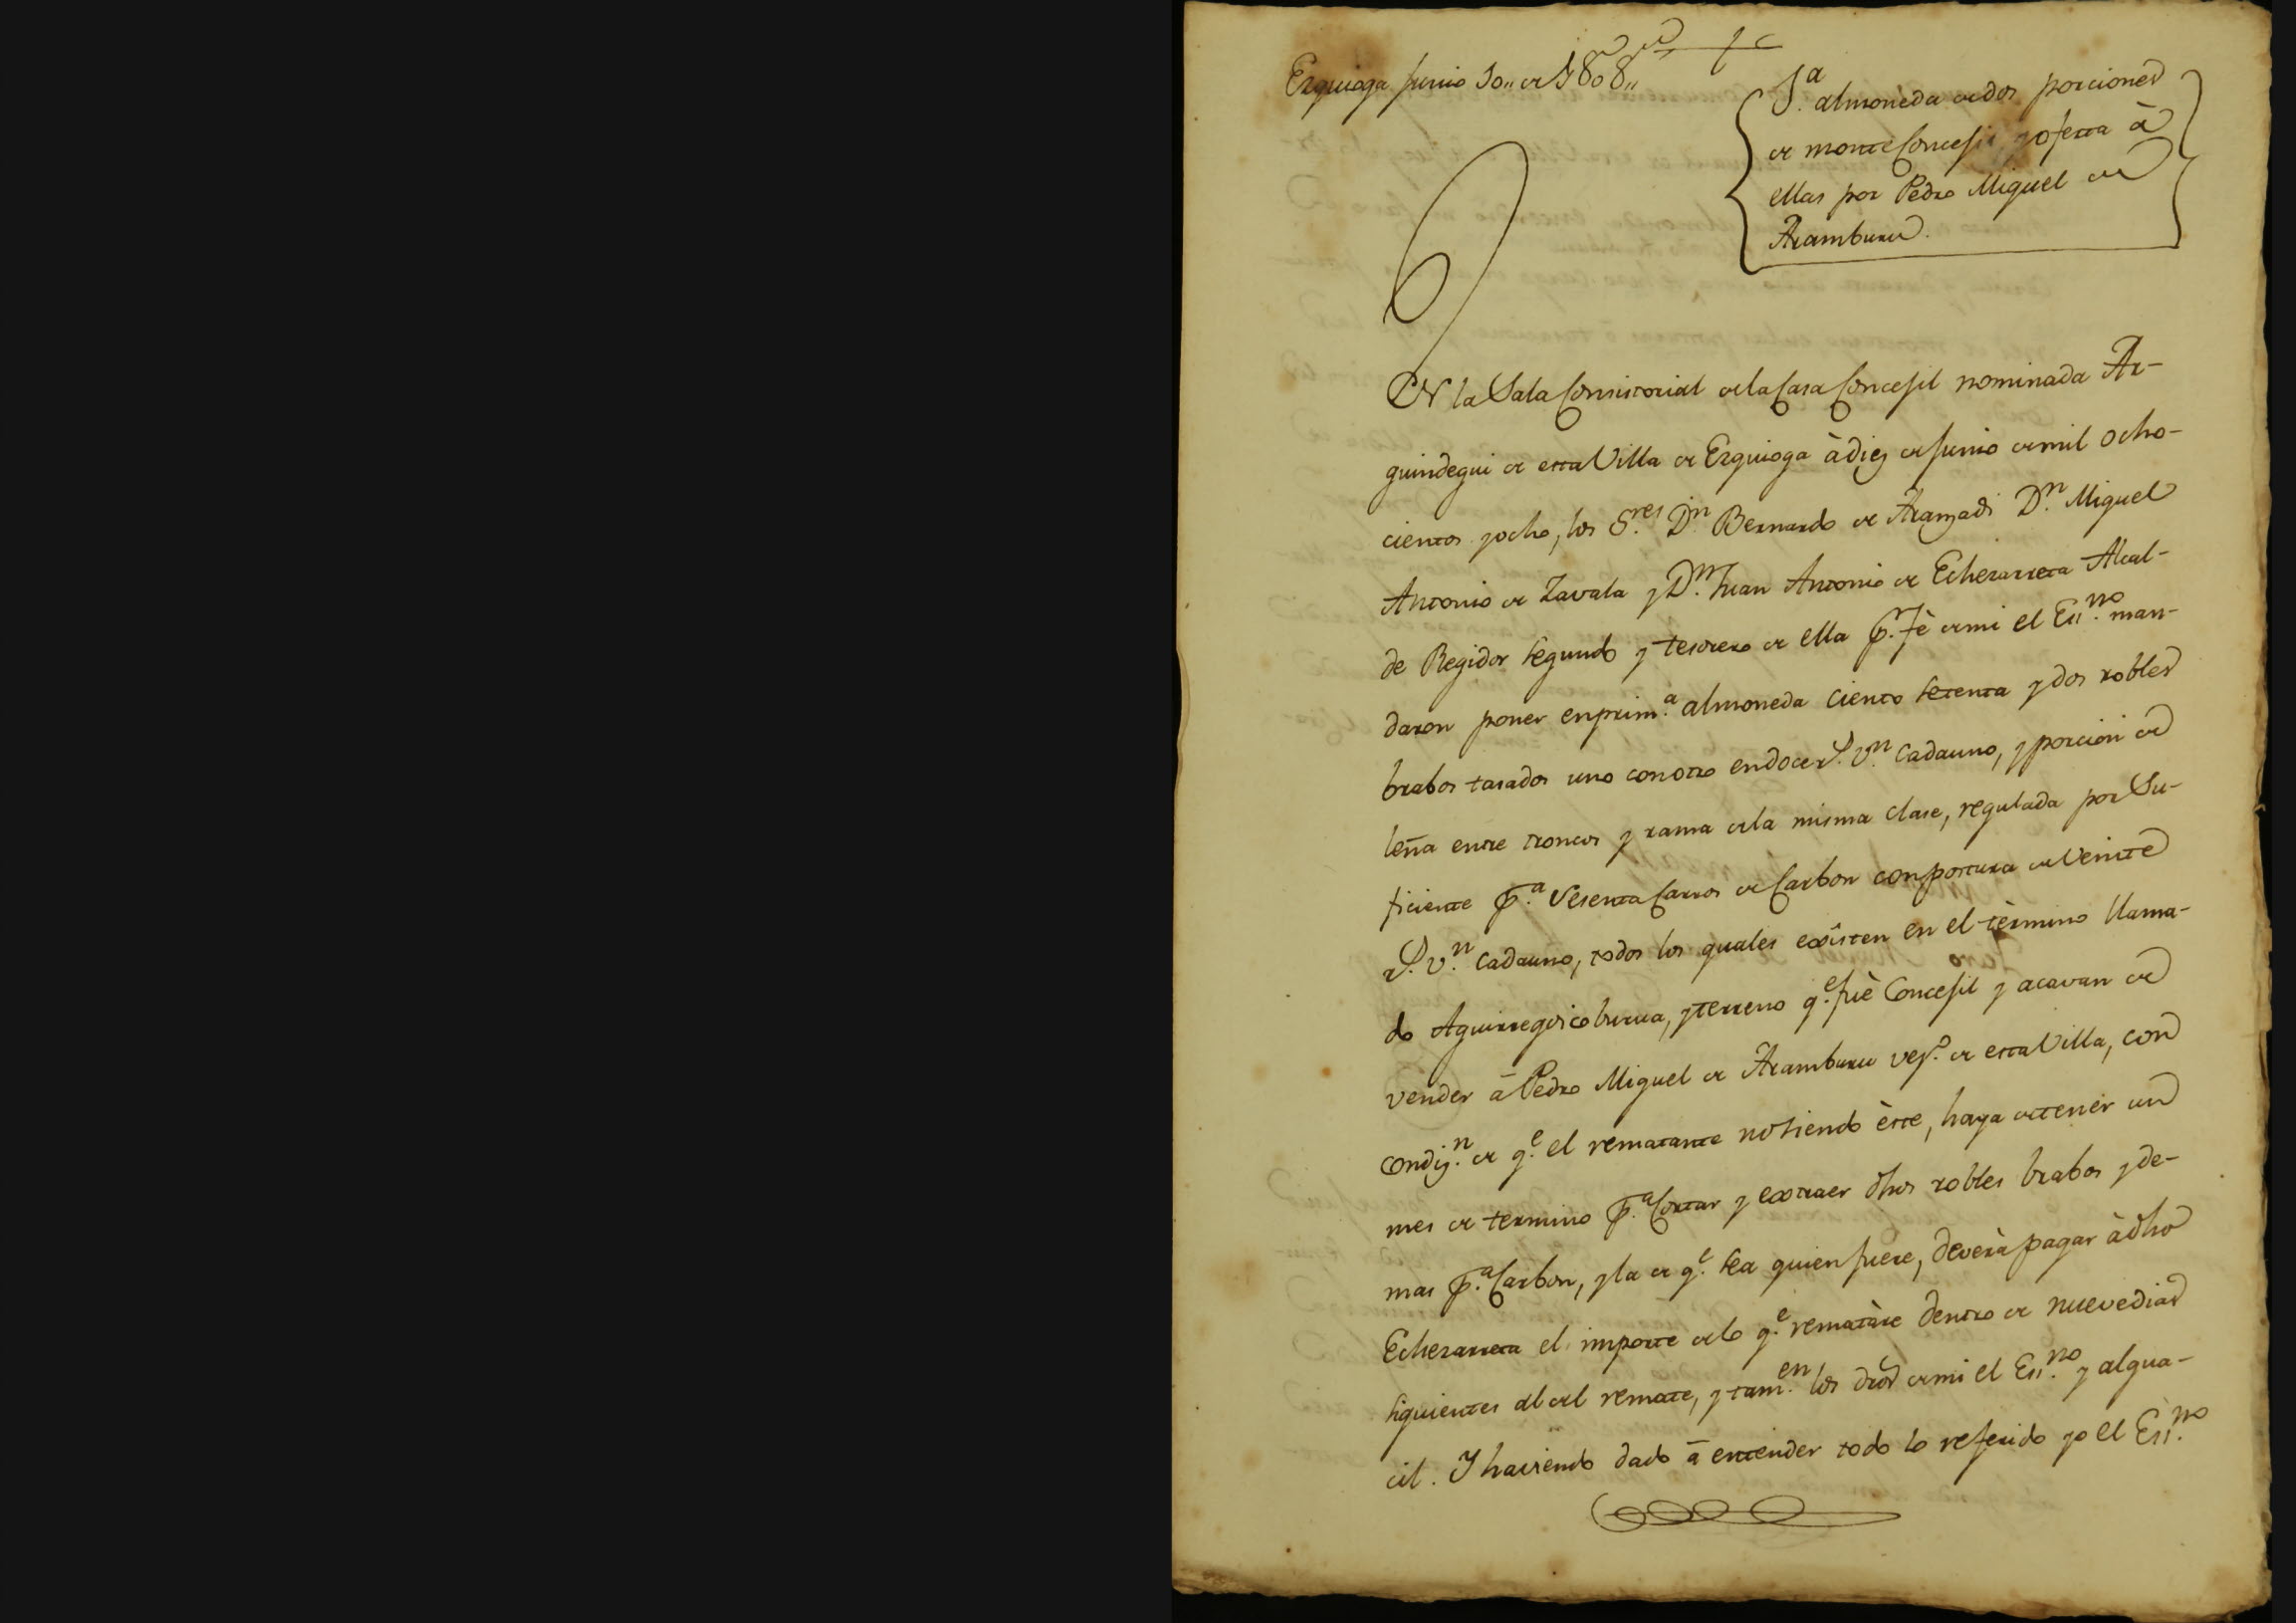 Ezquioga Junio 10,, de 1808,,
1.ª almoneda de dos porciones
de monte Concejil, y oferta à
ellas por Pedro Miguel de
Aramburu.
EN la Sala Consistorial de la Casa Concejil nominada Ar-
guindegui de esta Villa de Ezquioga à diez de Junio de mil ocho-
cientos y ocho, los S.res D.n Bernardo de Aramzadi D.n Miguel
Antonio de Zavala y D.n Juan Antonio de Echezarreta Alcal-
de Regidor segundo y tesorero de ella p.r fè de mi el Es.no man-
daron poner en prim.a almoneda ciento setenta y dos robles
brabos tasados uno con otro en doce r.s v.n cada uno, y porcion de
leña entre troncos y rama de la misma clase, regulada por Su-
ficiente p.a Sesenta Carros de Carbon con postura de Veinte
r.s v.n cada uno, todos los quales exîsten en el tèrmino llama-
do Aguirregoicoburua, y terreno q.e fuè Concejil y acavan de
vender à Pedro Miguel de Aramburu vez.o de esta Villa, con
condiz.n de q.e el rematante no siendo èste, haya de tener un
mes de termino p.a Cortar y extraer dhos robles brabos y de-
mas p.a Carbon, y la de q.e sea quien fuere, deverà pagar à dho
Echezarreta el importe de lo q.e rematàre dentro de nueve dias
siguientes al del remate, y tam.en los dros de mi el Es.no y algua-
cil. Y haviendo dado à entender todo lo referido yo el Es.no